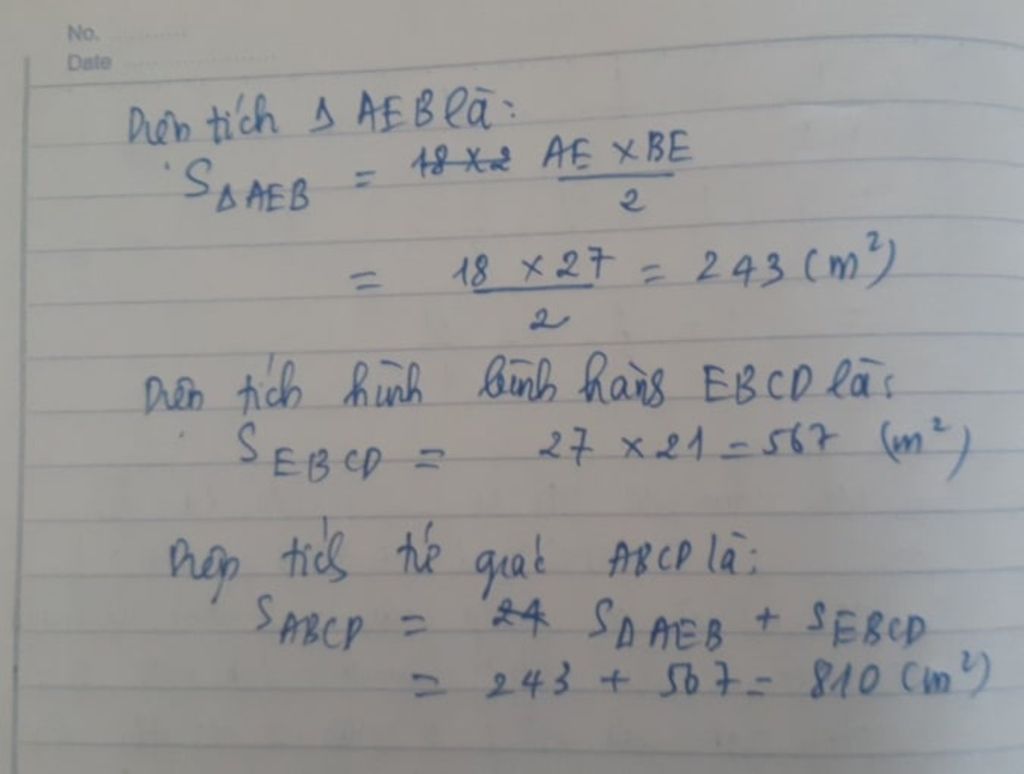 No.
Date
Diện tích Δ AEB là:
S Δ AEB = 18 x 2 AE x BE / 2
= 18 x 27 / 2 = 243 (m²)
Diện tích hình bình hành EBCD là:
S EBCD = 27 x 21 = 567 (m²)
Diện tích tứ giác ABCD là:
S ABCD = 24 S Δ AEB + S EBCD
= 243 + 567 = 810 (m²)